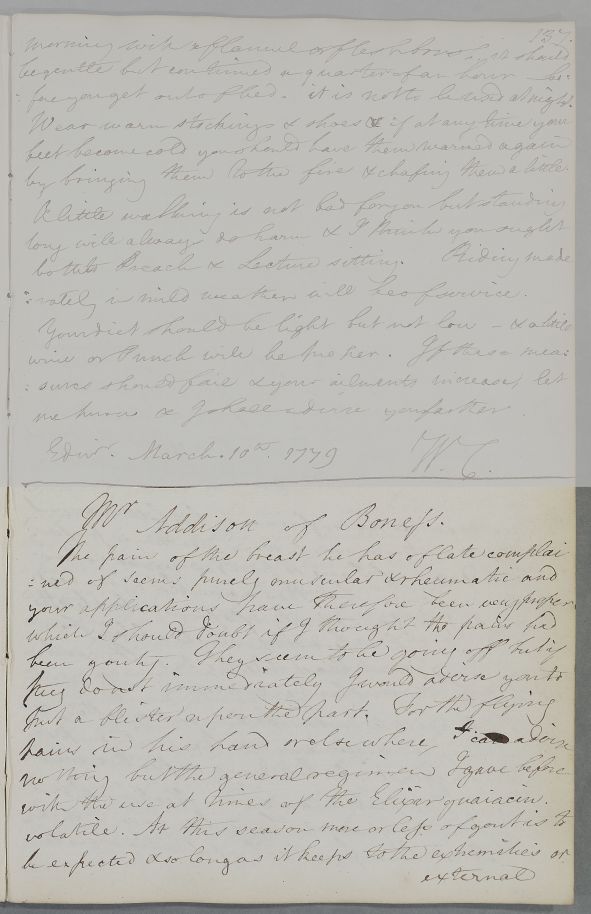 157.
morning with a flannel or flesh brush, it should
be gentle but continued a quarter of an hour be:
:fore you get out of bed. it is not to be used at night.
Wear warm stockings & shoes & if at any time your
feet become cold you should have them warmed again
by bringing them to the fire & chafing them a little.
A little walking is not bad for you but standing
long will always do harm & I think you ought
both to Preach & Lecture sitting. Riding mode
:rately in mild weather will be of service.
Your diet should be light but not low – & a little
wine or Punch will be proper. If these mea:
:sures should fail & your ailments increase, let
me know & I shall advise you farther.
Edinr. March. 10th. 1779 W. C.
Mr Addison of Boness.
The pain of the breast he has of late complai
:ned of seems purely muscular & rheumatic and
your applications have therefore been very proper
which I should doubt if I thought the pains had
been gouty. They seem to be going off but if
they do not immediately I would advise you to
put a blister upon the part. For the flying
pains in his hand or elsewhere, I can advise
nothing but the general regimen I gave before
with the use at times of the Elixir guaiacin.
volatile. At this season more or less of gout is to
be expected & so long as it keeps to the extremities or
external